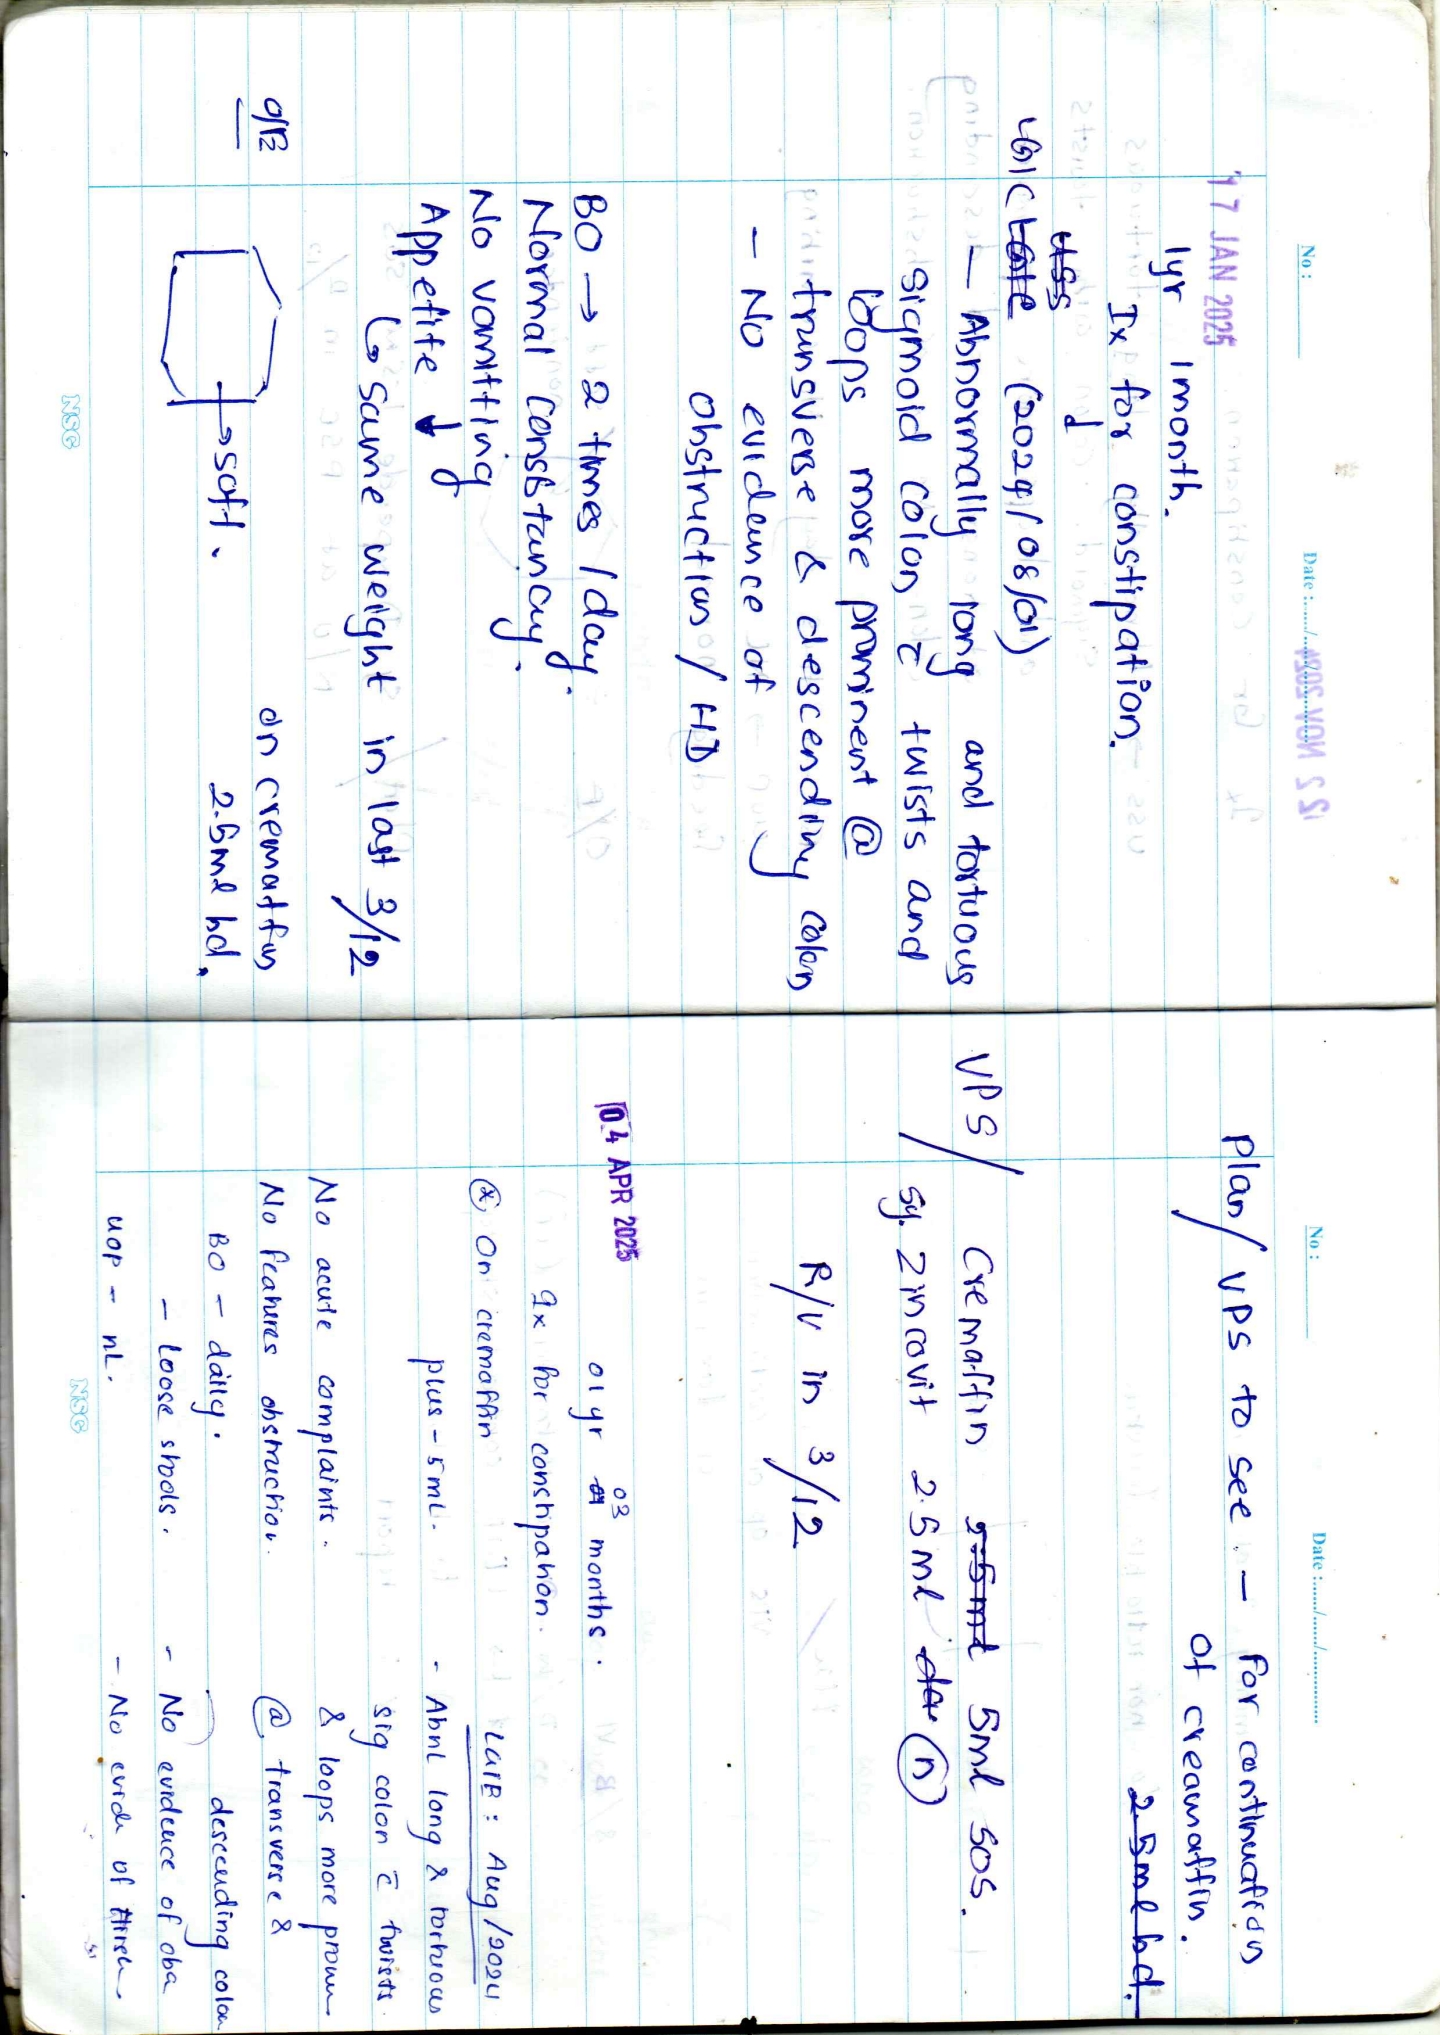 No :
Date :....../....../............
17 JAN 2025
1yr 1month.
Ix for constipation.
USS
UGIC (2024/08/01)
- Abnormally long and tortuous
sigmoid colon c̄ twists and
loops more prominent @
transverse & descending colon
- No evidence of
obstruction / HD
BO → 2 times /day.
Normal consistancy.
No vomitting
Appetite ↓
↳ same weight in last 3/12
on cremaffin
2.5ml bd.
O/E
→ soft.
NSG
No :
Date :....../....../............
plan/ VPS to see - For continuation
of creamaffin.
2.5ml bd.
VPS/
Cremaffin 5ml SOS.
Sy. Zincovit 2.5ml (n)
R/V in 3/12
04 APR 2025
01 yr 03 months.
Ix for constipation.
(x) On cremaffin
plus - 5mL.
No acute complaints.
No features obstruction.
BO - daily.
- loose stools.
UOP - nL.
LGIE : Aug/2024
- Abnl long & tortuous
sig colon c̄ twists
& loops more prom
@ transverse &
descending colon
- No evidence of obs
- No evide of Hirsch
NSG